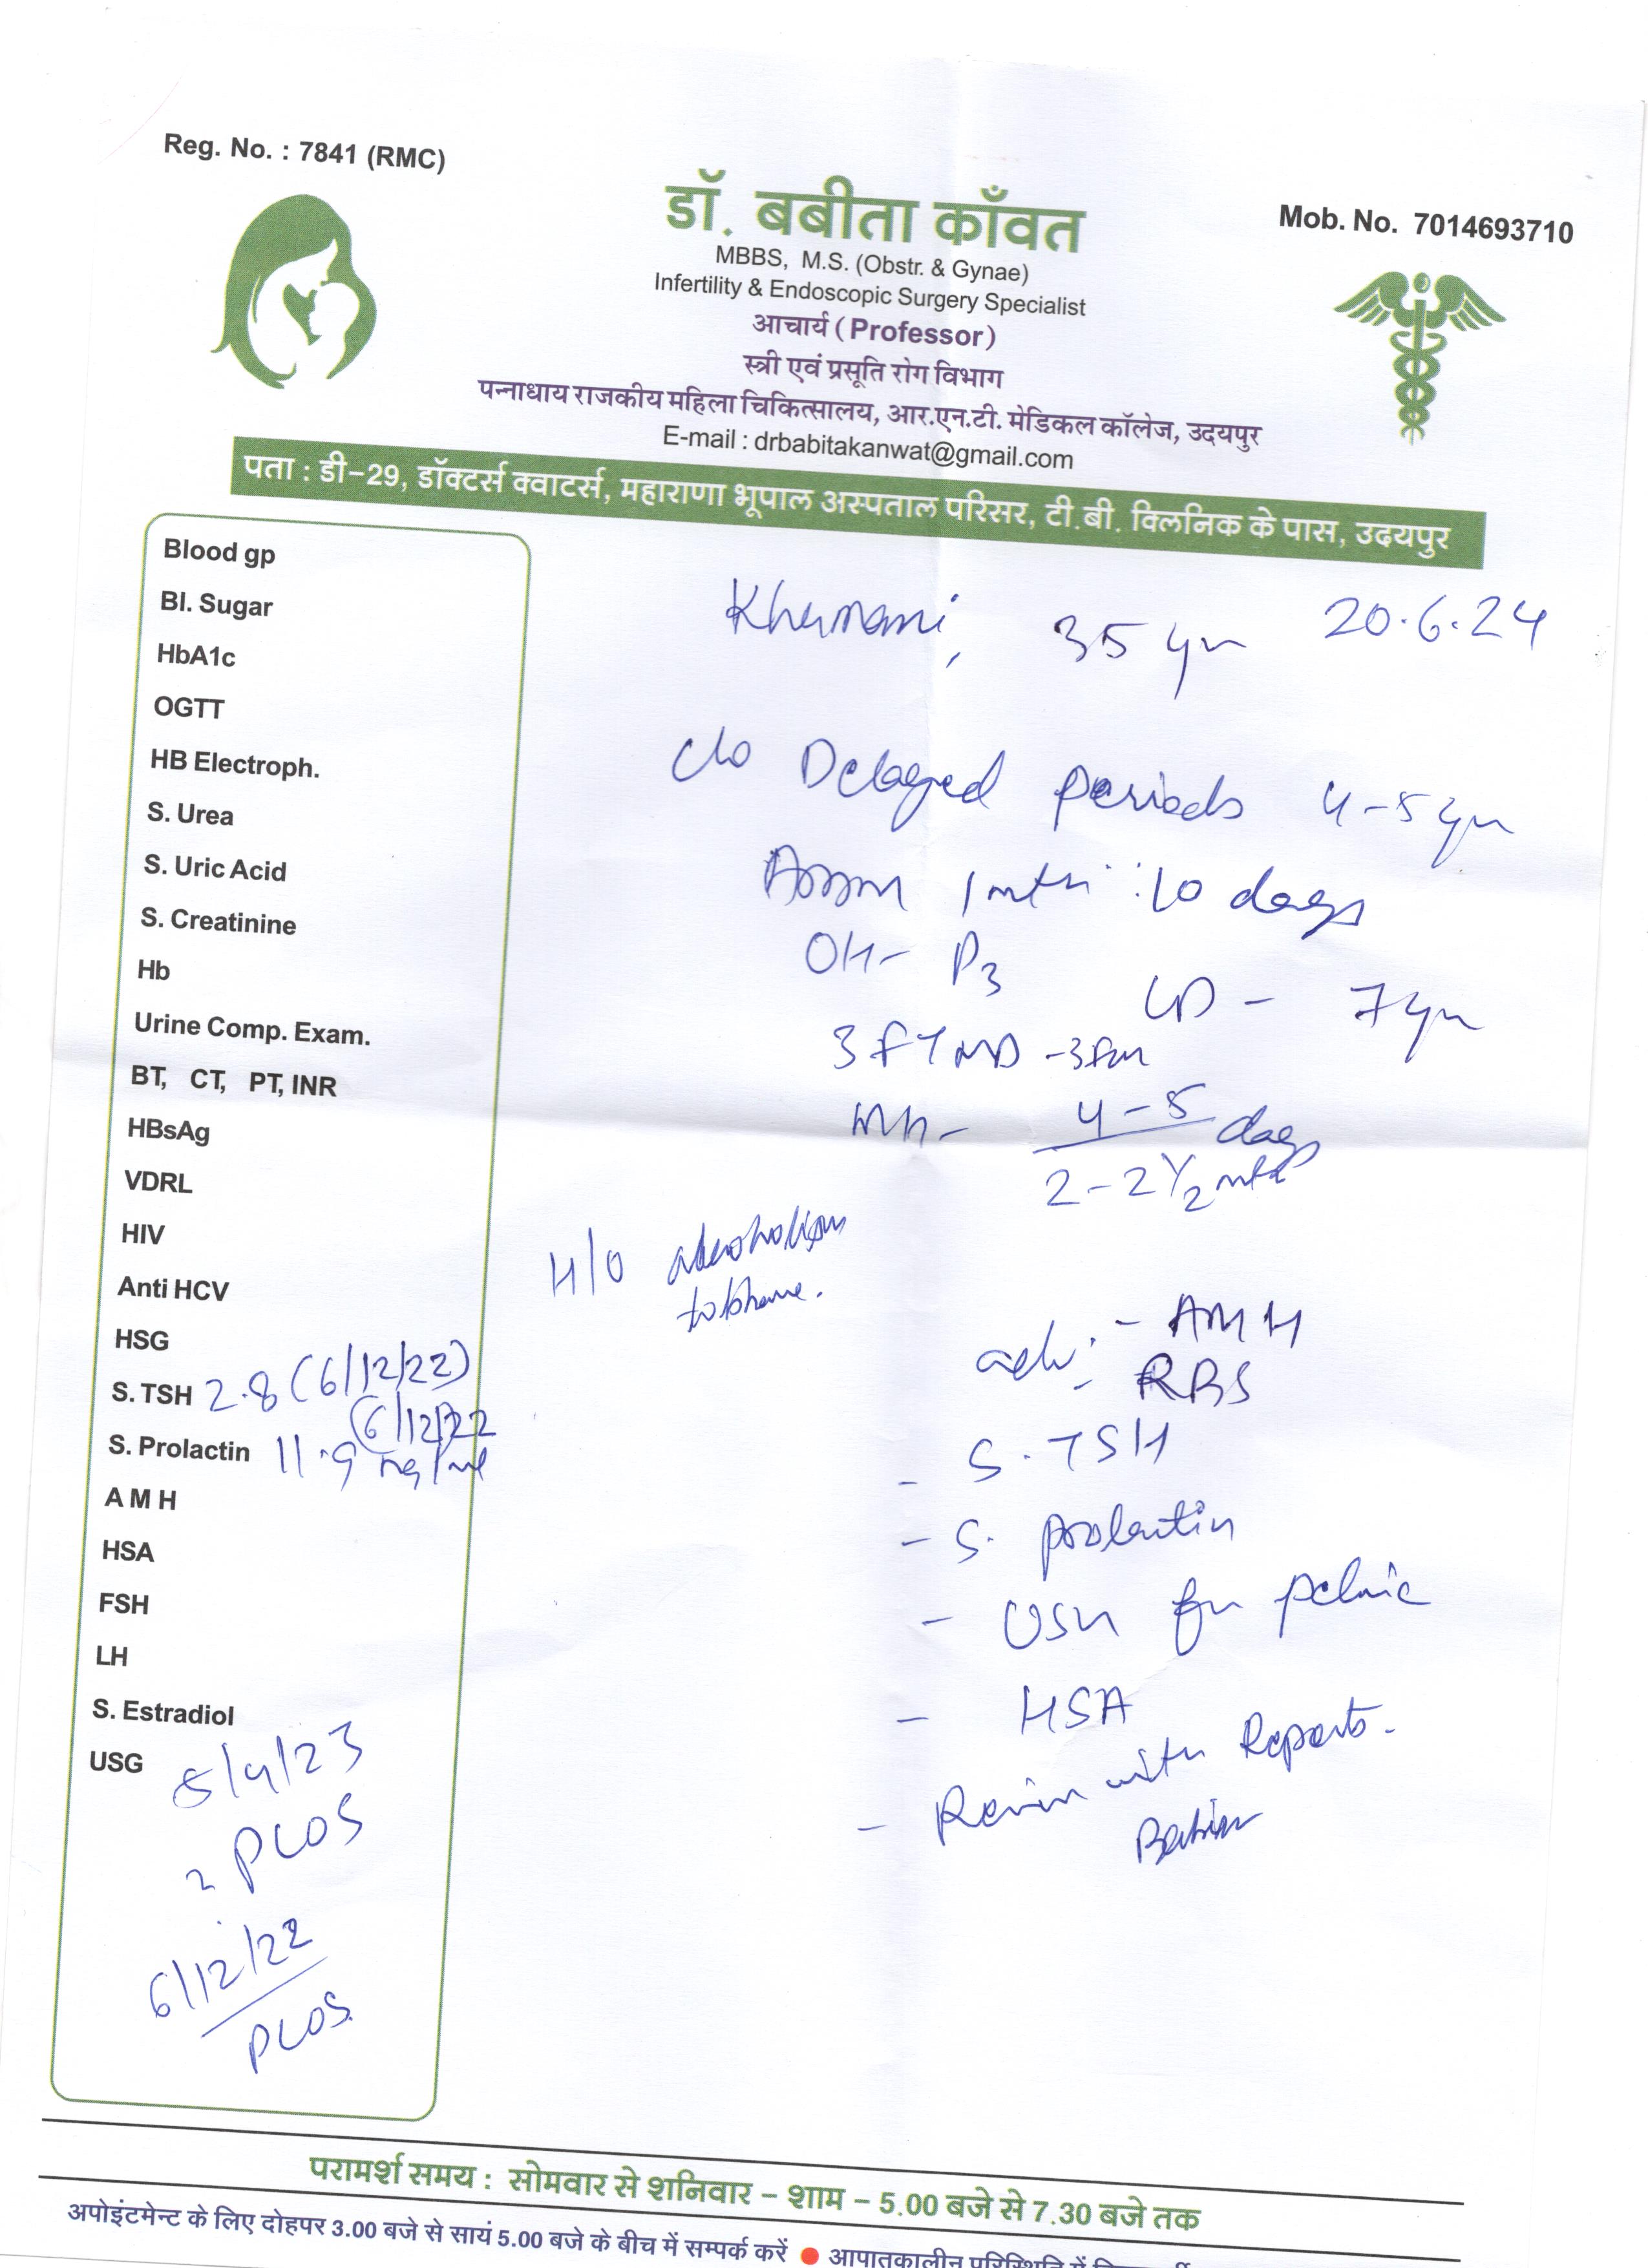 Reg. No. : 7841 (RMC)
डॉ. बबीता काँवत
Mob. No. 7014693710
MBBS, M.S. (Obstr. & Gynae)
Infertility & Endoscopic Surgery Specialist
आचार्य ( Professor )
स्त्री एवं प्रसूति रोग विभाग
पन्नाधाय राजकीय महिला चिकित्सालय, आर.एन.टी. मेडिकल कॉलेज, उदयपुर
E-mail : drbabitakanwat@gmail.com
पता : डी-29, डॉक्टर्स क्वाटर्स, महाराणा भूपाल अस्पताल परिसर, टी.बी. क्लिनिक के पास, उदयपुर
Blood gp
Bl. Sugar
HbA1c
OGTT
HB Electroph.
S. Urea
S. Uric Acid
S. Creatinine
Hb
Urine Comp. Exam.
BT, CT, PT, INR
HBsAg
VDRL
HIV
Anti HCV
HSG
S. TSH 2.8 (6/12/22)
(6/12/22
S. Prolactin 11.9 ng/ml
A M H
HSA
FSH
LH
S. Estradiol
USG
5/4/23
PCOS
6/12/22
PCOS
35 yr 20.6.24
c/o Delayed periods 4-5 yr
1 mth 10 days
OH- P3
LD - 7 yr
3 FTND -
MH- 4-5 days
2-2 1/2 mth
H/O alcoholism
adv: - AMH
RBS
- S. TSH
- S. prolactin
- USG for pelvic
- HSA
- Review with Reports.
परामर्श समय : सोमवार से शनिवार – शाम – 5.00 बजे से 7.30 बजे तक
अपोइंटमेन्ट के लिए दोहपर 3.00 बजे से सायं 5.00 बजे के बीच में सम्पर्क करें ● आपातकालीन परिस्थिति में